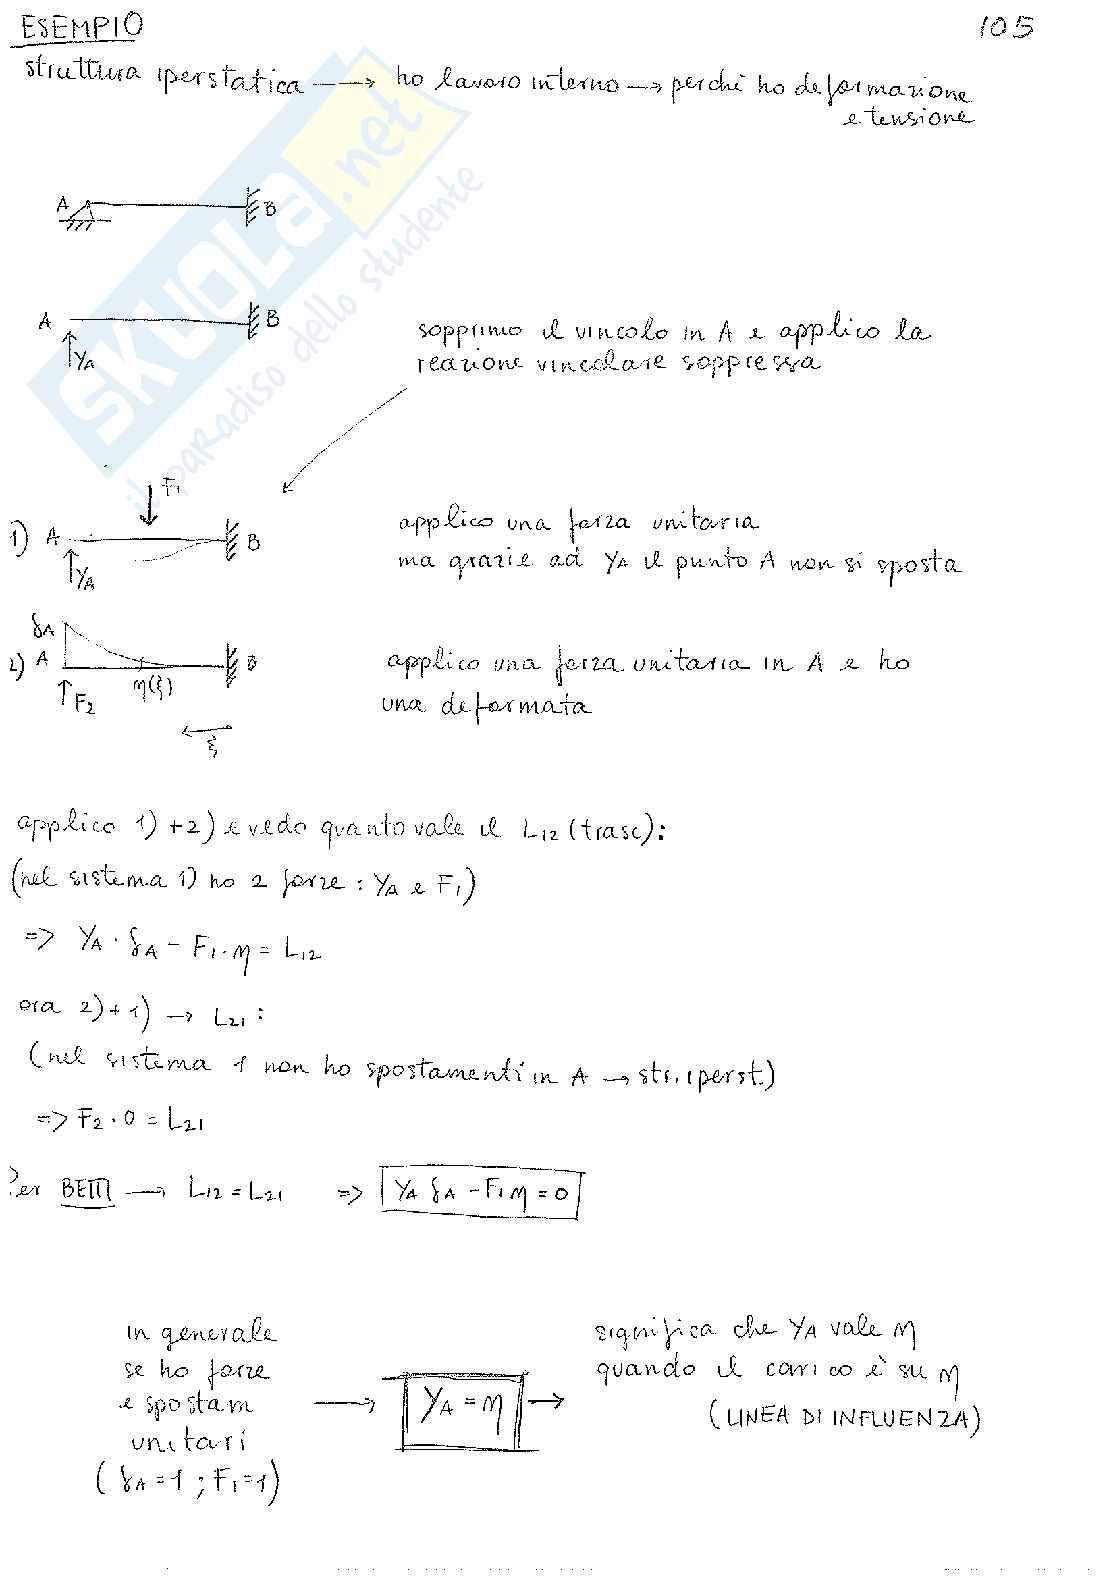 ESEMPIO
105
struttura iperstatica → ho lavoro interno → perché ho deformazione
e tensione
A
B
A
B
YA
sopprimo il vincolo in A e applico la
reazione vincolare soppressa
F1
1) A
B
YA
applico una forza unitaria
ma grazie ad YA il punto A non si sposta
δA
2) A
B
F2
η(ξ)
ξ
applico una forza unitaria in A e ho
una deformata
applico 1) + 2) e vedo quanto vale il L12 (trasc):
(nel sistema 1) ho 2 forze : YA e F1)
=> YA · δA - F1 · η = L12
ora 2) + 1) → L21 :
(nel sistema 1 non ho spostamenti in A → str. iperst.)
=> F2 · 0 = L21
Per BETTI → L12 = L21 => YA δA - F1 η = 0
in generale
se ho forze
e spostam
unitari
(δA = 1 ; F1 = 1)
→ YA = η →
significa che YA vale η
quando il carico è su η
(LINEA DI INFLUENZA)
SKUOLA.net
il paradiso dello studente